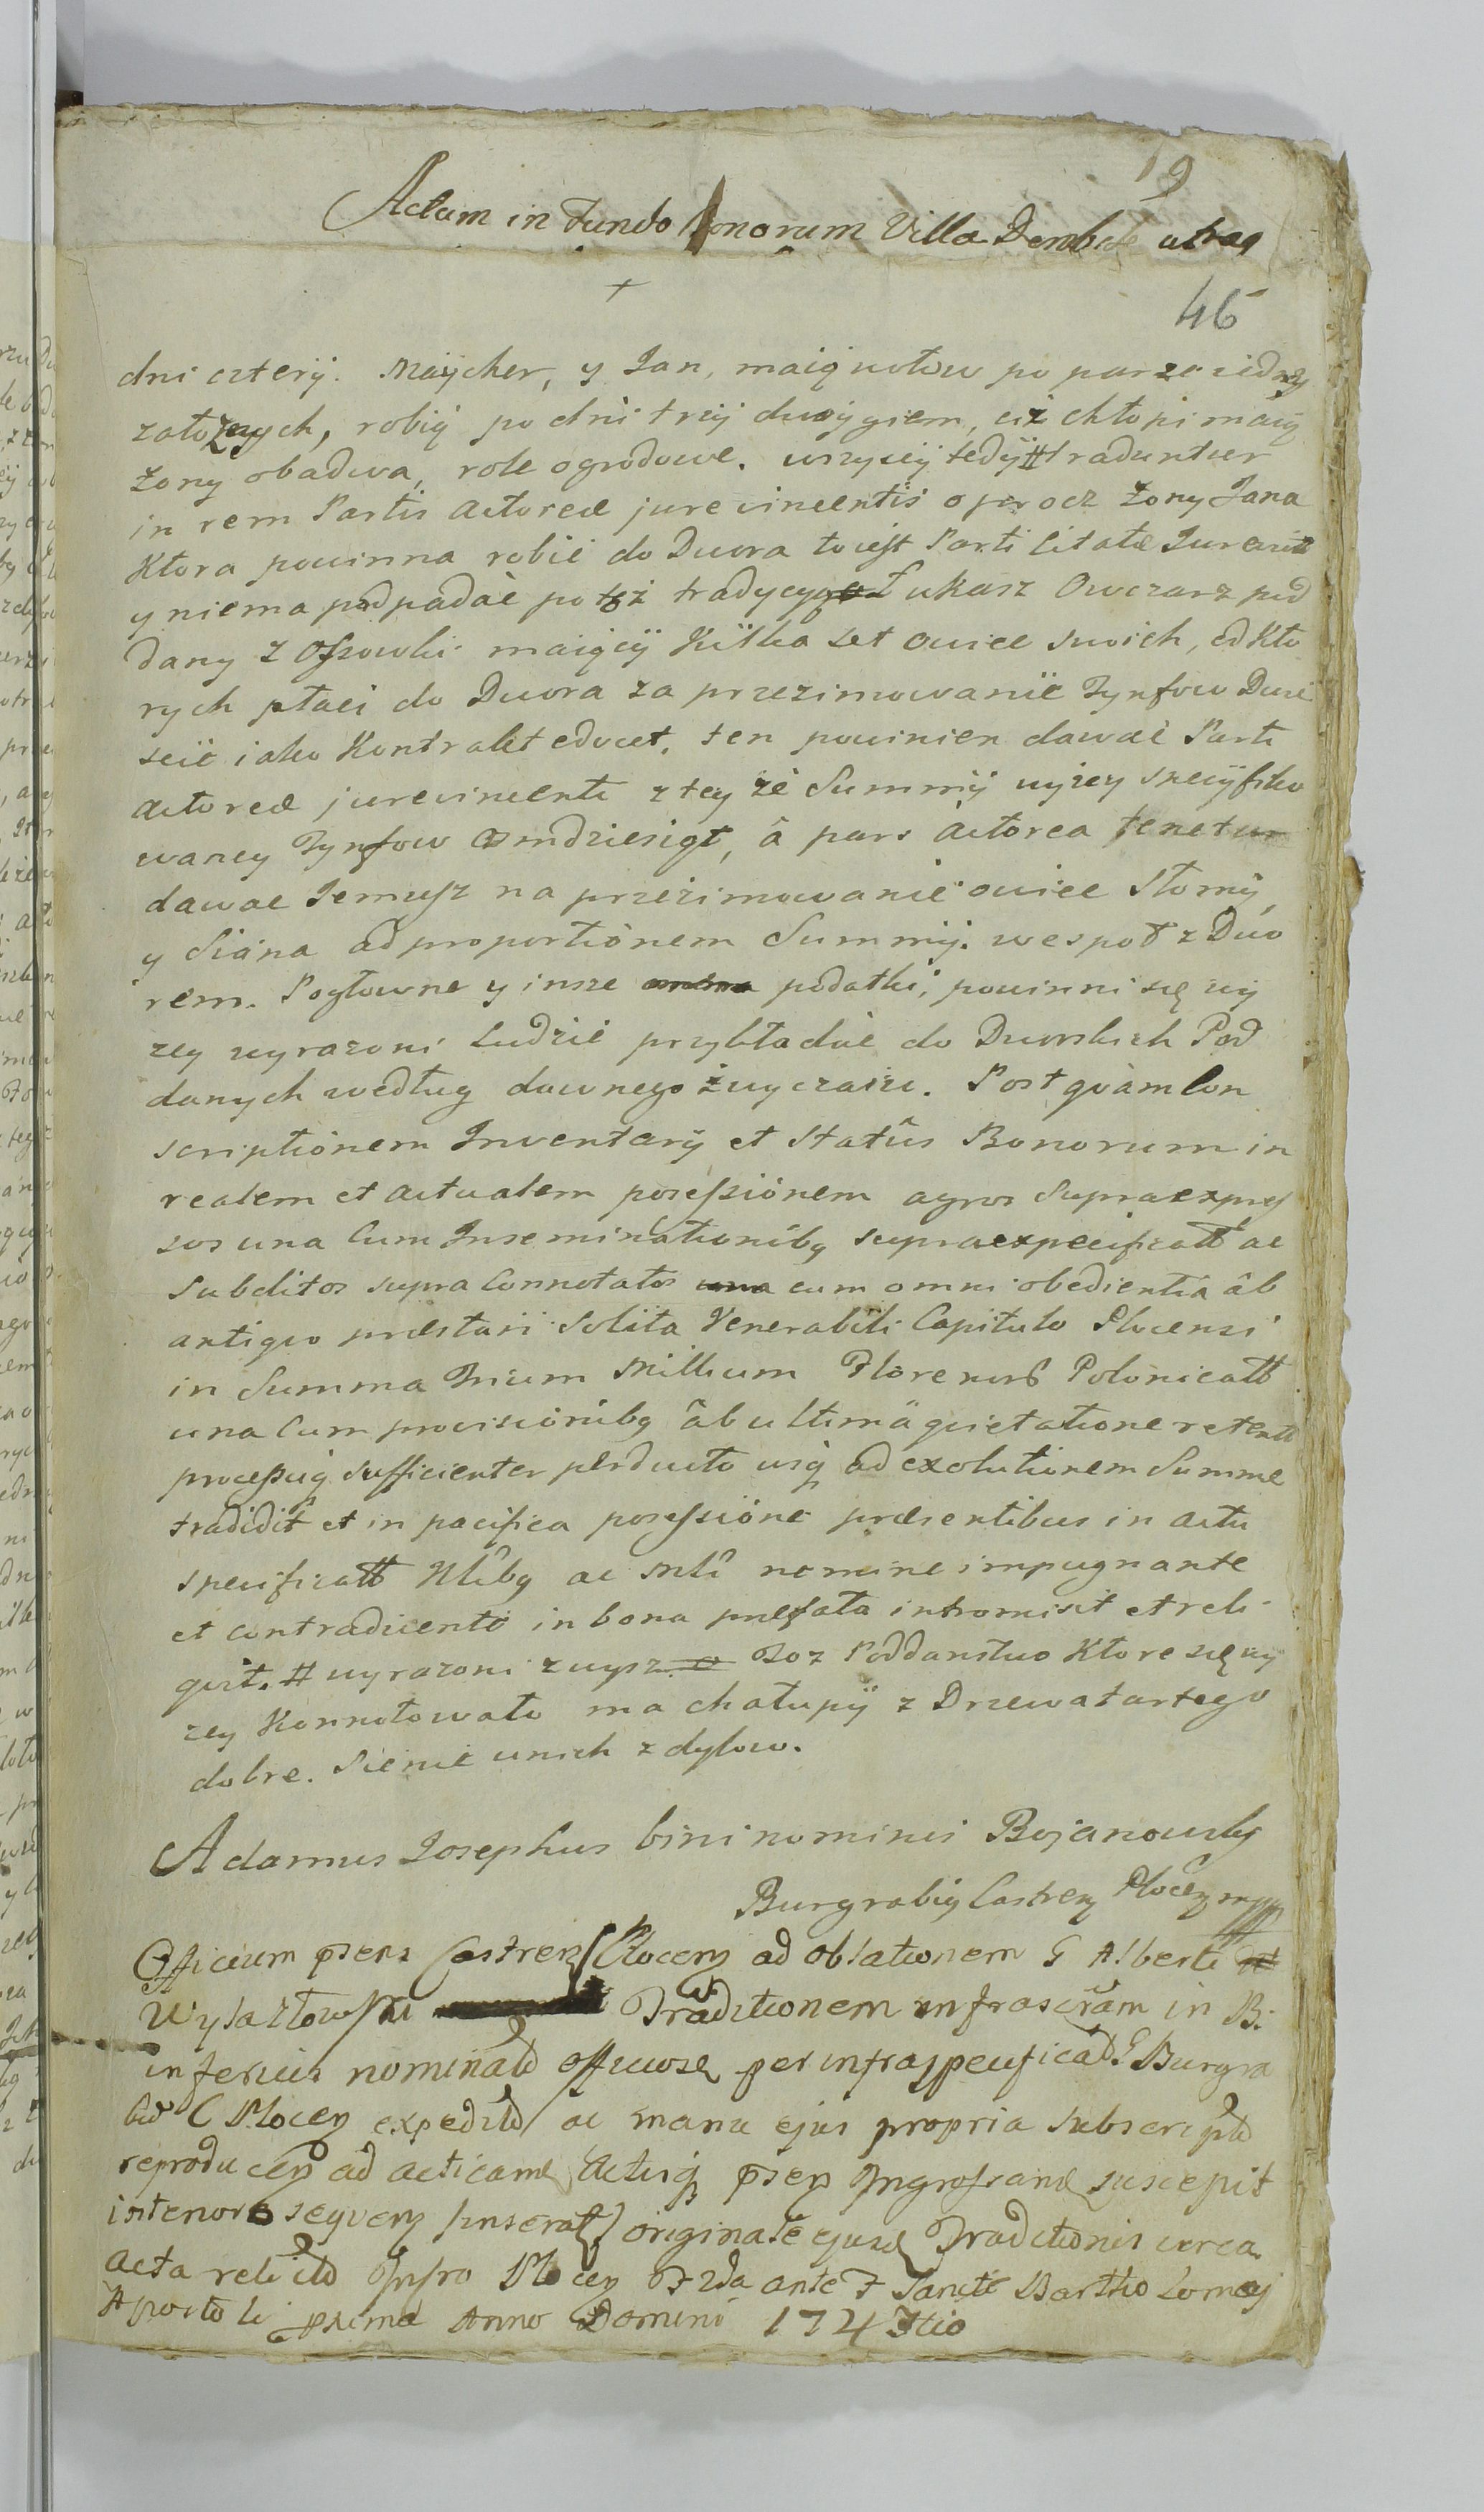 19
Actum in Fundo bonorum Villa Dembsk utraq
46
dni czterÿ. Maÿcher, y Jan, maią wołow po parze iedney
załoznych, robią po dni trzÿ dwoÿgiem, ciż chłopi maią
żony obadwa, role ogrodowe. wszyscÿ tedÿ # traduntur
in rem Partis Actoreæ jurevincentis oprocz żony Jana
Ktora powinna robic do Dwora to iest Parti Citatæ
y niema podpadać pod tęż tradycyą Łukasz Owczarz pod
dany z Ossowki maiącÿ Kÿlka set owiec swoich, od Kto
rych płaci do Dwora za przezimowanie Tynfow Dwie
scie iako Kontrakt edocet, ten powinien dawać Parti
Actoreæ jurevincenti z tey że Summÿ wyzey specÿfiko
waney Tynfow osmdziesiąt, â pars Actorea tenetur
dawac Jemusz na przezimowanie owiec Słomÿ,
y Siana ad proportionem Summÿ. wespoł z Dwo
rem. Pogłowne y insze podatki, powinni się wÿ
zey wyrazoni Ludzie przykładać do Dworskich Pod
danych według dawnego zwyczaiu. Post qvam Con
scriptionem Inventarÿ et Statûs Bonorum in
realem et actualem possessionem agros Supraexpres
sos una Cum Inseminationibq supraexpecificatt ac
Subditos supra Connotatos cum omni obedientia âb
antiqvo præstari Solita Venerabili Capitulo Plocensi
in Summa Trium Millium Florenorũ Polonicatt
una Cum provisionibq âb ultima qvietatione retentt
processuq sufficienter perducto usq ad exolutionem Summæ
tradidit et in pacifica possessione præsentibus in actu
specificatt Nlibq ac Mli nemine impugnante
et contradicente in bona præfata intromisit et reli-
qvit. # wyrazoni zwysz Toz Poddanstwo Ktore się wy
zey Konnotowało ma chałupÿ z Drzewa tartego
dobre. Sienie u nich z dylow.
Adamus Josephus bini nominis Bojanowsky
Burgrabig Castren Plocen mpp
Officium pñens Castren Plocen ad oblationem G Alberti
Wylazłowski Traditionem infrascrãm in B.
inferius nominatt officiose per infraspecificatt G Burgra
biũ C Plocen expeditt ac manu ejus propria subscriptt
reproducen ad acticand Actisq pñsen Ingrossand suscepit
tenore seqven inserat originale ejusd Traditionis circa
Acta relictt Inpro Plocen F 2da ante F Sancti Bartholomej
Apostoli pxima Anno Domini 1743tio